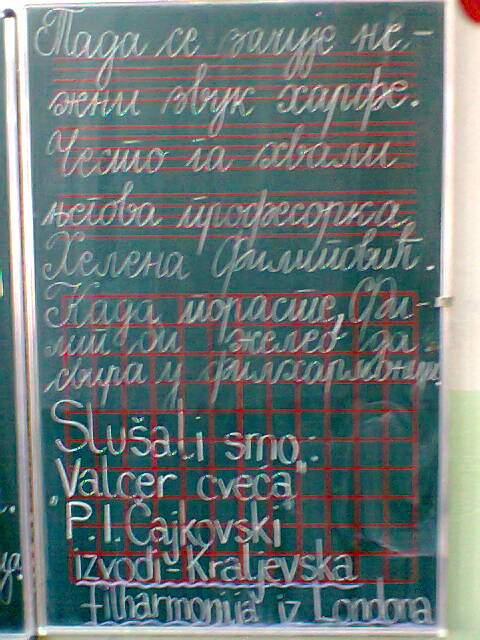 Тада се зачује не-
жни звук харфе.
Често га хвали
његова професорка
Хелена Филиповић.
Када порасте, Фи-
лип би желео да
свира у филхармонији.
Slušali smo:
"Valcer cveća"
P. I. Čajkovski
izvodi-Kraljevska
filharmonija iz Londona